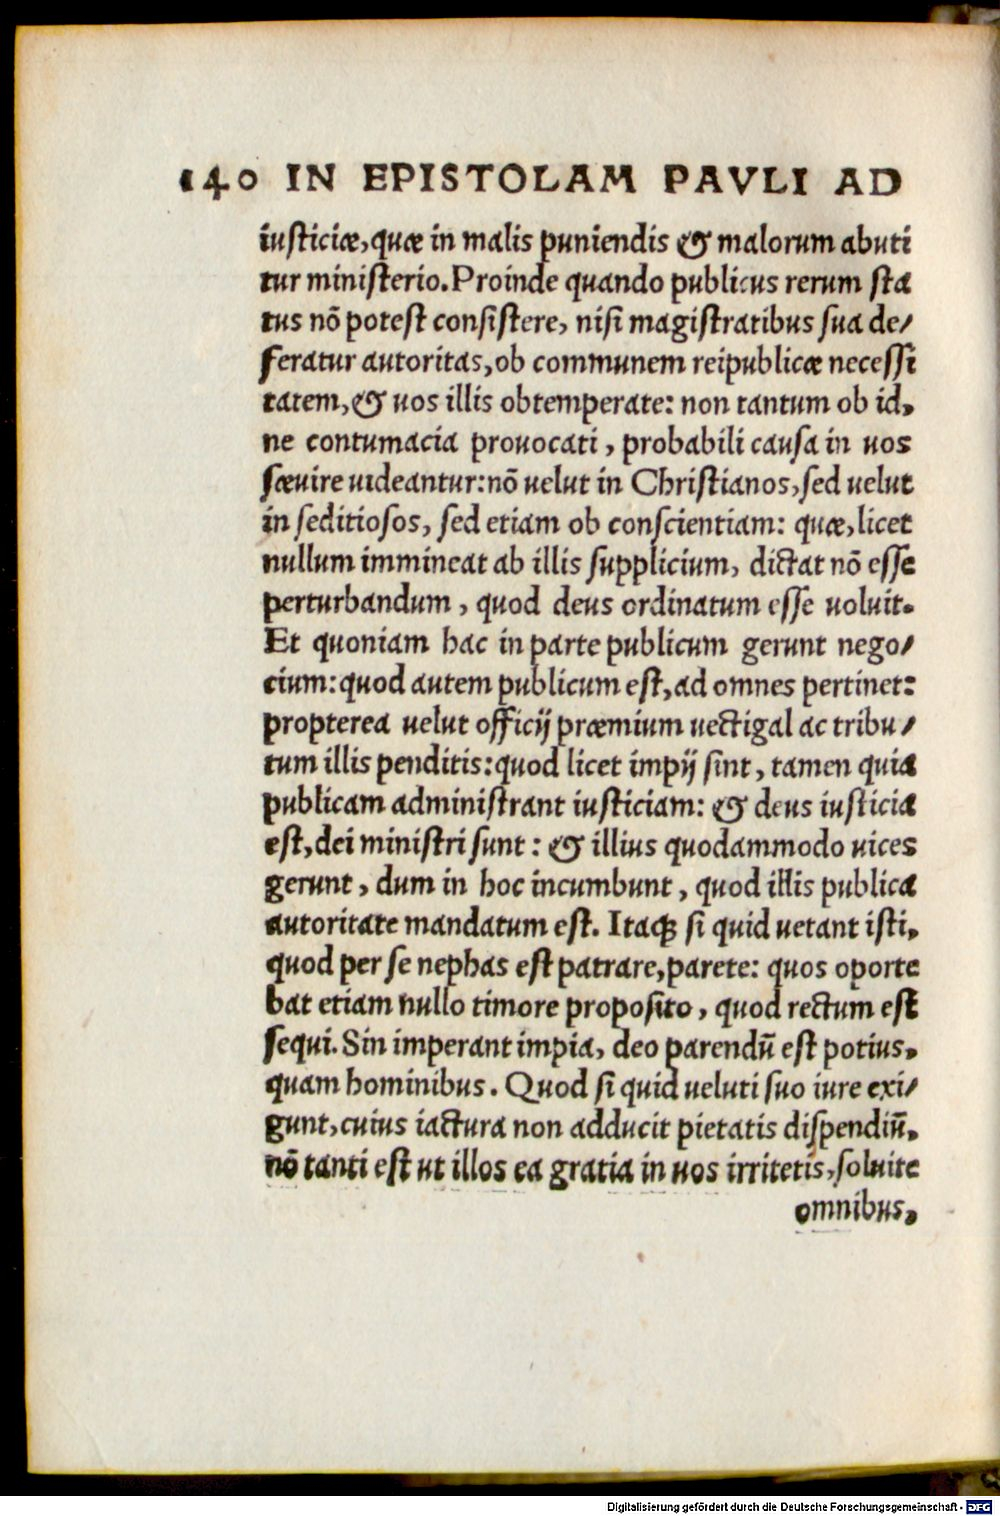 140 IN EPISTOLAM PAVLI AD
iusticiæ, quæ in malis puniendis & malorum abuti
tur ministerio. Proinde quando publicus rerum sta
tus nõ potest consistere, nisi magistratibus sua de/
feratur autoritas, ob communem reipublicæ necessi
tatem, & uos illis obtemperate: non tantum ob id,
ne contumacia prouocati, probabili causa in uos
sæuire uideantur: nõ uelut in Christianos, sed uelut
in seditiosos, sed etiam ob conscientiam: quæ, licet
nullum immineat ab illis supplicium, dictat nõ esse
perturbandum, quod deus ordinatum esse uoluit.
Et quoniam hac in parte publicum gerunt nego/
cium: quod autem publicum est, ad omnes pertinet:
propterea uelut officij præmium uectigal ac tribu/
tum illis penditis: quod licet impij sint, tamen quia
publicam administrant iusticiam: & deus iusticia
est, dei ministri sunt: & illius quodammodo uices
gerunt, dum in hoc incumbunt, quod illis publica
autoritate mandatum est. Itaq; si quid uetant isti,
quod per se nephas est patrare, parete: quos oporte
bat etiam nullo timore proposito, quod rectum est
sequi. Sin imperant impia, deo parendũ est potius,
quam hominibus. Quod si quid ueluti suo iure exi/
gunt, cuius iactura non adducit pietatis dispendiũ,
nõ tanti est ut illos ea gratia in uos irritetis, soluite
omnibus,
Digitalisierung gefördert durch die Deutsche Forschungsgemeinschaft - DFG